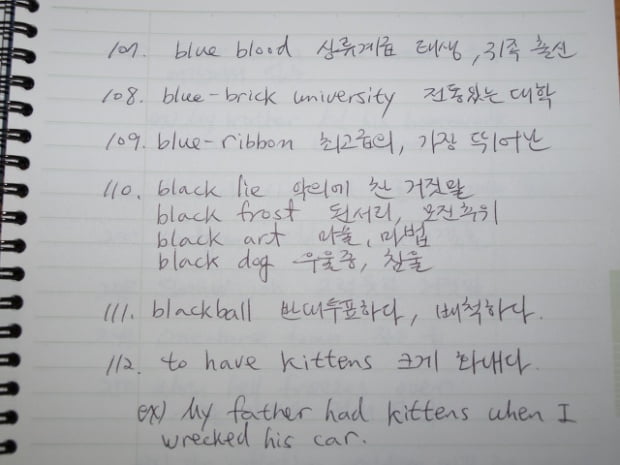 107. blue blood 상류계급 태생, 귀족 출신
108. blue-brick university 전통있는 대학
109. blue-ribbon 최고급의, 가장 뛰어난
110. black lie 악의에 찬 거짓말
black frost 된서리, 모진추위
black art 마술, 마법
black dog 우울증, 찬울
111. blackball 반대투표하다, 배척하다.
112. to have kittens 크게 화내다.
ex) My father had kittens when I
wrecked his car.